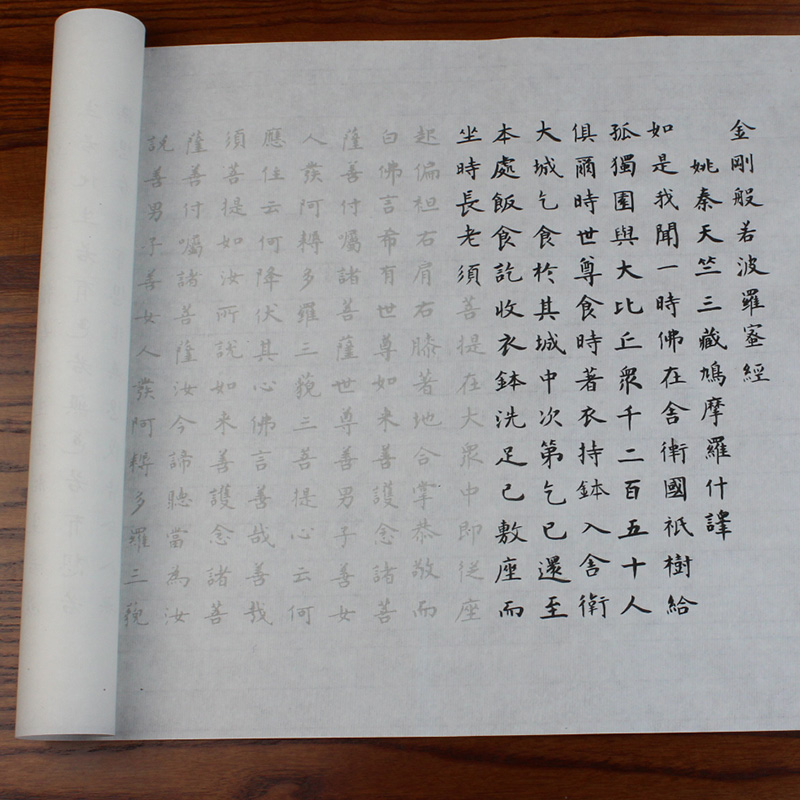 金剛般若波羅蜜經
姚秦天竺三藏鳩摩羅什譯
如是我聞一時佛在舍衛國祇樹給
孤獨園與大比丘眾千二百五十人
俱爾時世尊食時著衣持鉢入舍衛
大城乞食於其城中次第乞已還至
本處飯食訖收衣鉢洗足已敷座而
坐時長老須菩提在大眾中即從座
起偏袒右肩右膝著地合掌恭敬而
白佛言希有世尊如来善護念諸菩
薩善付囑諸菩薩世尊善男子善女
人發阿耨多羅三藐三菩提心云何
應住云何降伏其心佛言善哉善哉
須菩提如汝所說如来善護念諸菩
薩善付囑諸菩薩汝今諦聽當為汝
說善男子善女人發阿耨多羅三藐